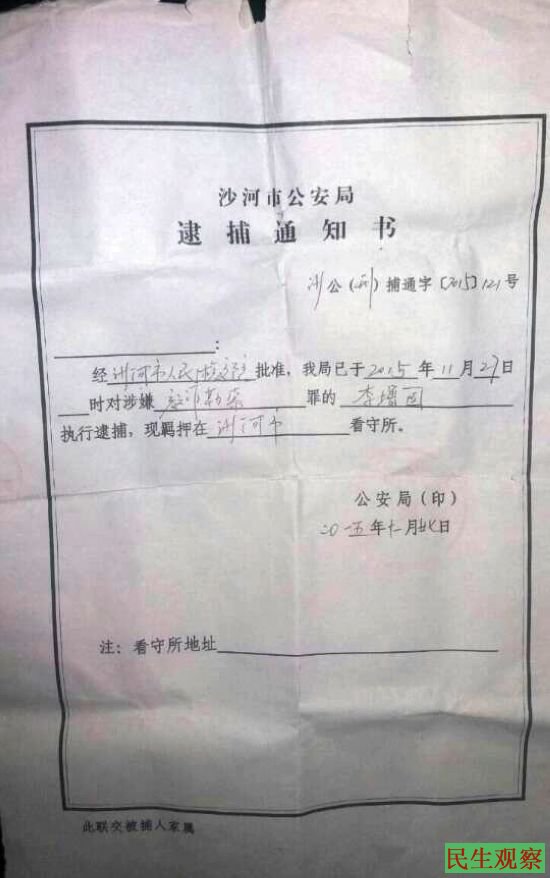 沙河市公安局
逮捕通知书
沙公(刑)捕通字〔2015〕121号
:
经沙河市人民检察院批准，我局已于2015年11月27日
时对涉嫌敲诈勒索罪的李增国
执行逮捕，现羁押在沙河市看守所。
公安局(印)
二〇一五年十一月廿七日
注：看守所地址
此联交被捕人家属
民生观察